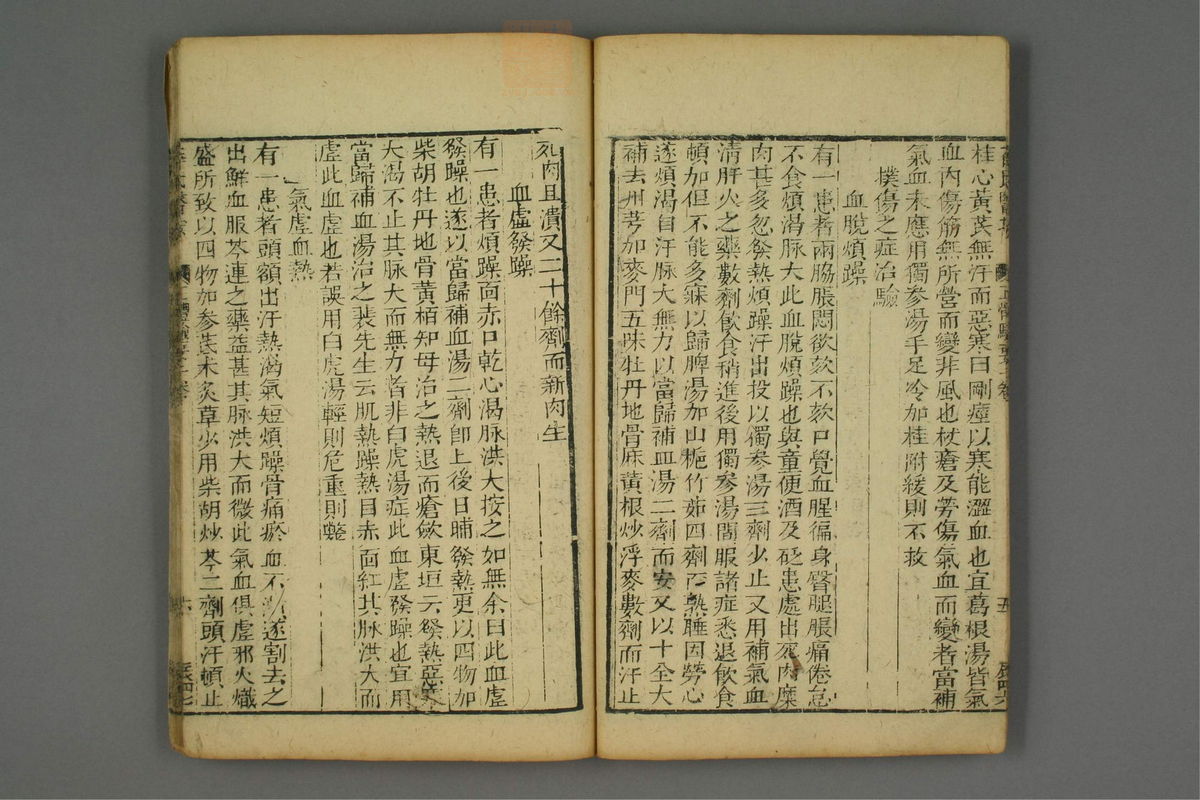 桂心黃芪無汗而惡寒曰剛痙以寒能澀血也宜葛根湯皆氣
血內傷筋無所營而變非風也杖瘡及勞傷氣血而變者當補
氣血未應用獨參湯手足冷加桂附緩則不救
撲傷之症治驗
血脫煩躁
有一患者兩脇脹悶欲欬不欬口覺血腥徧身臀腿脹痛倦怠
不食煩渴脉大此血脫煩躁也與童便酒及砭患處出死肉糜
肉甚多忽發熱煩躁汗出投以獨參湯三劑少止又用補氣血
清肝火之藥數劑飲食稍進後用獨參湯間服諸症悉退飲食
頓加但不能多寐以歸脾湯加山梔竹茹四劑而熟睡因勞心
遂煩渴自汗脉大無力以當歸補血湯二劑而安又以十全大
補去川芎加麥門五味牡丹地骨麻黃根炒浮麥數劑而汗止
死肉且潰又二十餘劑而新肉生
血虛發躁
有一患者煩躁面赤口乾心渴脉洪大按之如無余曰此血虛
發躁也遂以當歸補血湯二劑卽上後日晡發熱更以四物加
柴胡牡丹地骨黃栢知母治之熱退而瘡斂東垣云發熱惡寒
大渴不止其脉大而無力者非白虎湯症此血虛發躁也宜用
當歸補血湯治之裴先生云肌熱躁熱目赤面紅其脉洪大而
虛此血虛也若誤用白虎湯輕則危重則斃
氣虛血熱
有一患者頭額出汗熱渴氣短煩躁骨痛瘀血不散遂割去之
出鮮血服芩連之藥益甚其脉洪大而微此氣血俱虛邪火熾
盛所致以四物加參芪朮炙草少用柴胡炒芩二劑頭汗頓止